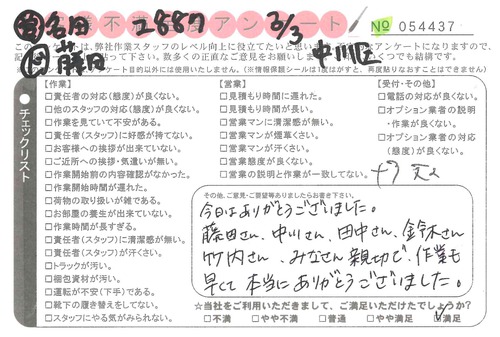 営 名田 2887 3/3 № 054437
作 藤田 中川区
お客様不満足度アンケート
このアンケートは、弊社作業スタッフのレベル向上に役立てたいと思います。
※情報保護シールは1度はがすと、再度貼りなおすことができません
チェックリスト
【作業】
□責任者の対応(態度)が良くない。
□他のスタッフの対応(態度)が良くない。
□作業を見ていて不安がある。
□責任者(スタッフ)に好感が持てない。
□お客様への挨拶が出来ていない。
□ご近所への挨拶・気遣いが無い。
□作業開始前の内容確認がなかった。
□作業開始時間が遅れた。
□荷物の取り扱いが雑である。
□お部屋の養生が出来ていない。
□作業時間が長すぎる。
□責任者(スタッフ)に清潔感が無い。
□責任者(スタッフ)が汗くさい。
□トラックが汚い。
□梱包資材が汚い。
□運転が不安(下手)である。
□靴下の履き替えをしてない。
□スタッフにやる気がみられない。
【営業】
□見積もり時間に遅れた。
□見積もり時間が長い。
□営業マンに清潔感が無い。
□営業マンが煙草くさい。
□営業マンが汗くさい。
□営業態度が良くない。
□営業の説明と作業が一致してない。
【受付・その他】
□電話の対応が良くない。
□オプション業者の説明
・作業が良くない。
□オプション業者の対応
(態度)が良くない。
その他、ご意見・ご要望等ありましたらお書き下さい。
今日はありがとうございました。
藤田さん、中川さん、田中さん、鈴木さん
竹内さん、みなさん親切で、作業も
早くて本当にありがとうございました。
☆当社をご利用いただきまして、ご満足いただけたでしょうか?
□不満 □やや不満 □普通 □やや満足 □満足